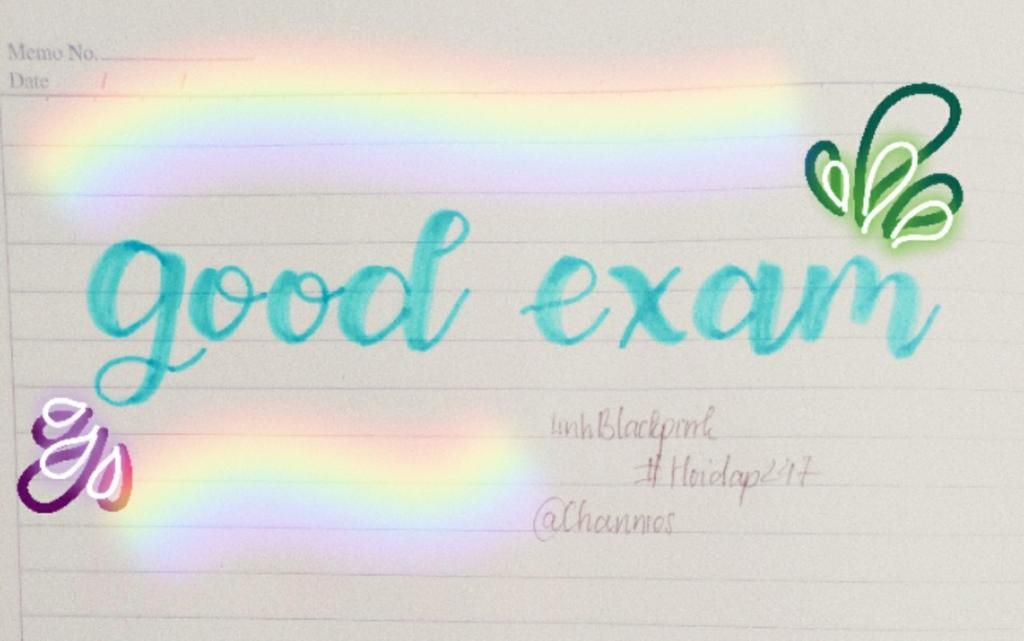 Memo No.
Date / /
good exam
linhBlackpink
#Hoidap247
@Channies